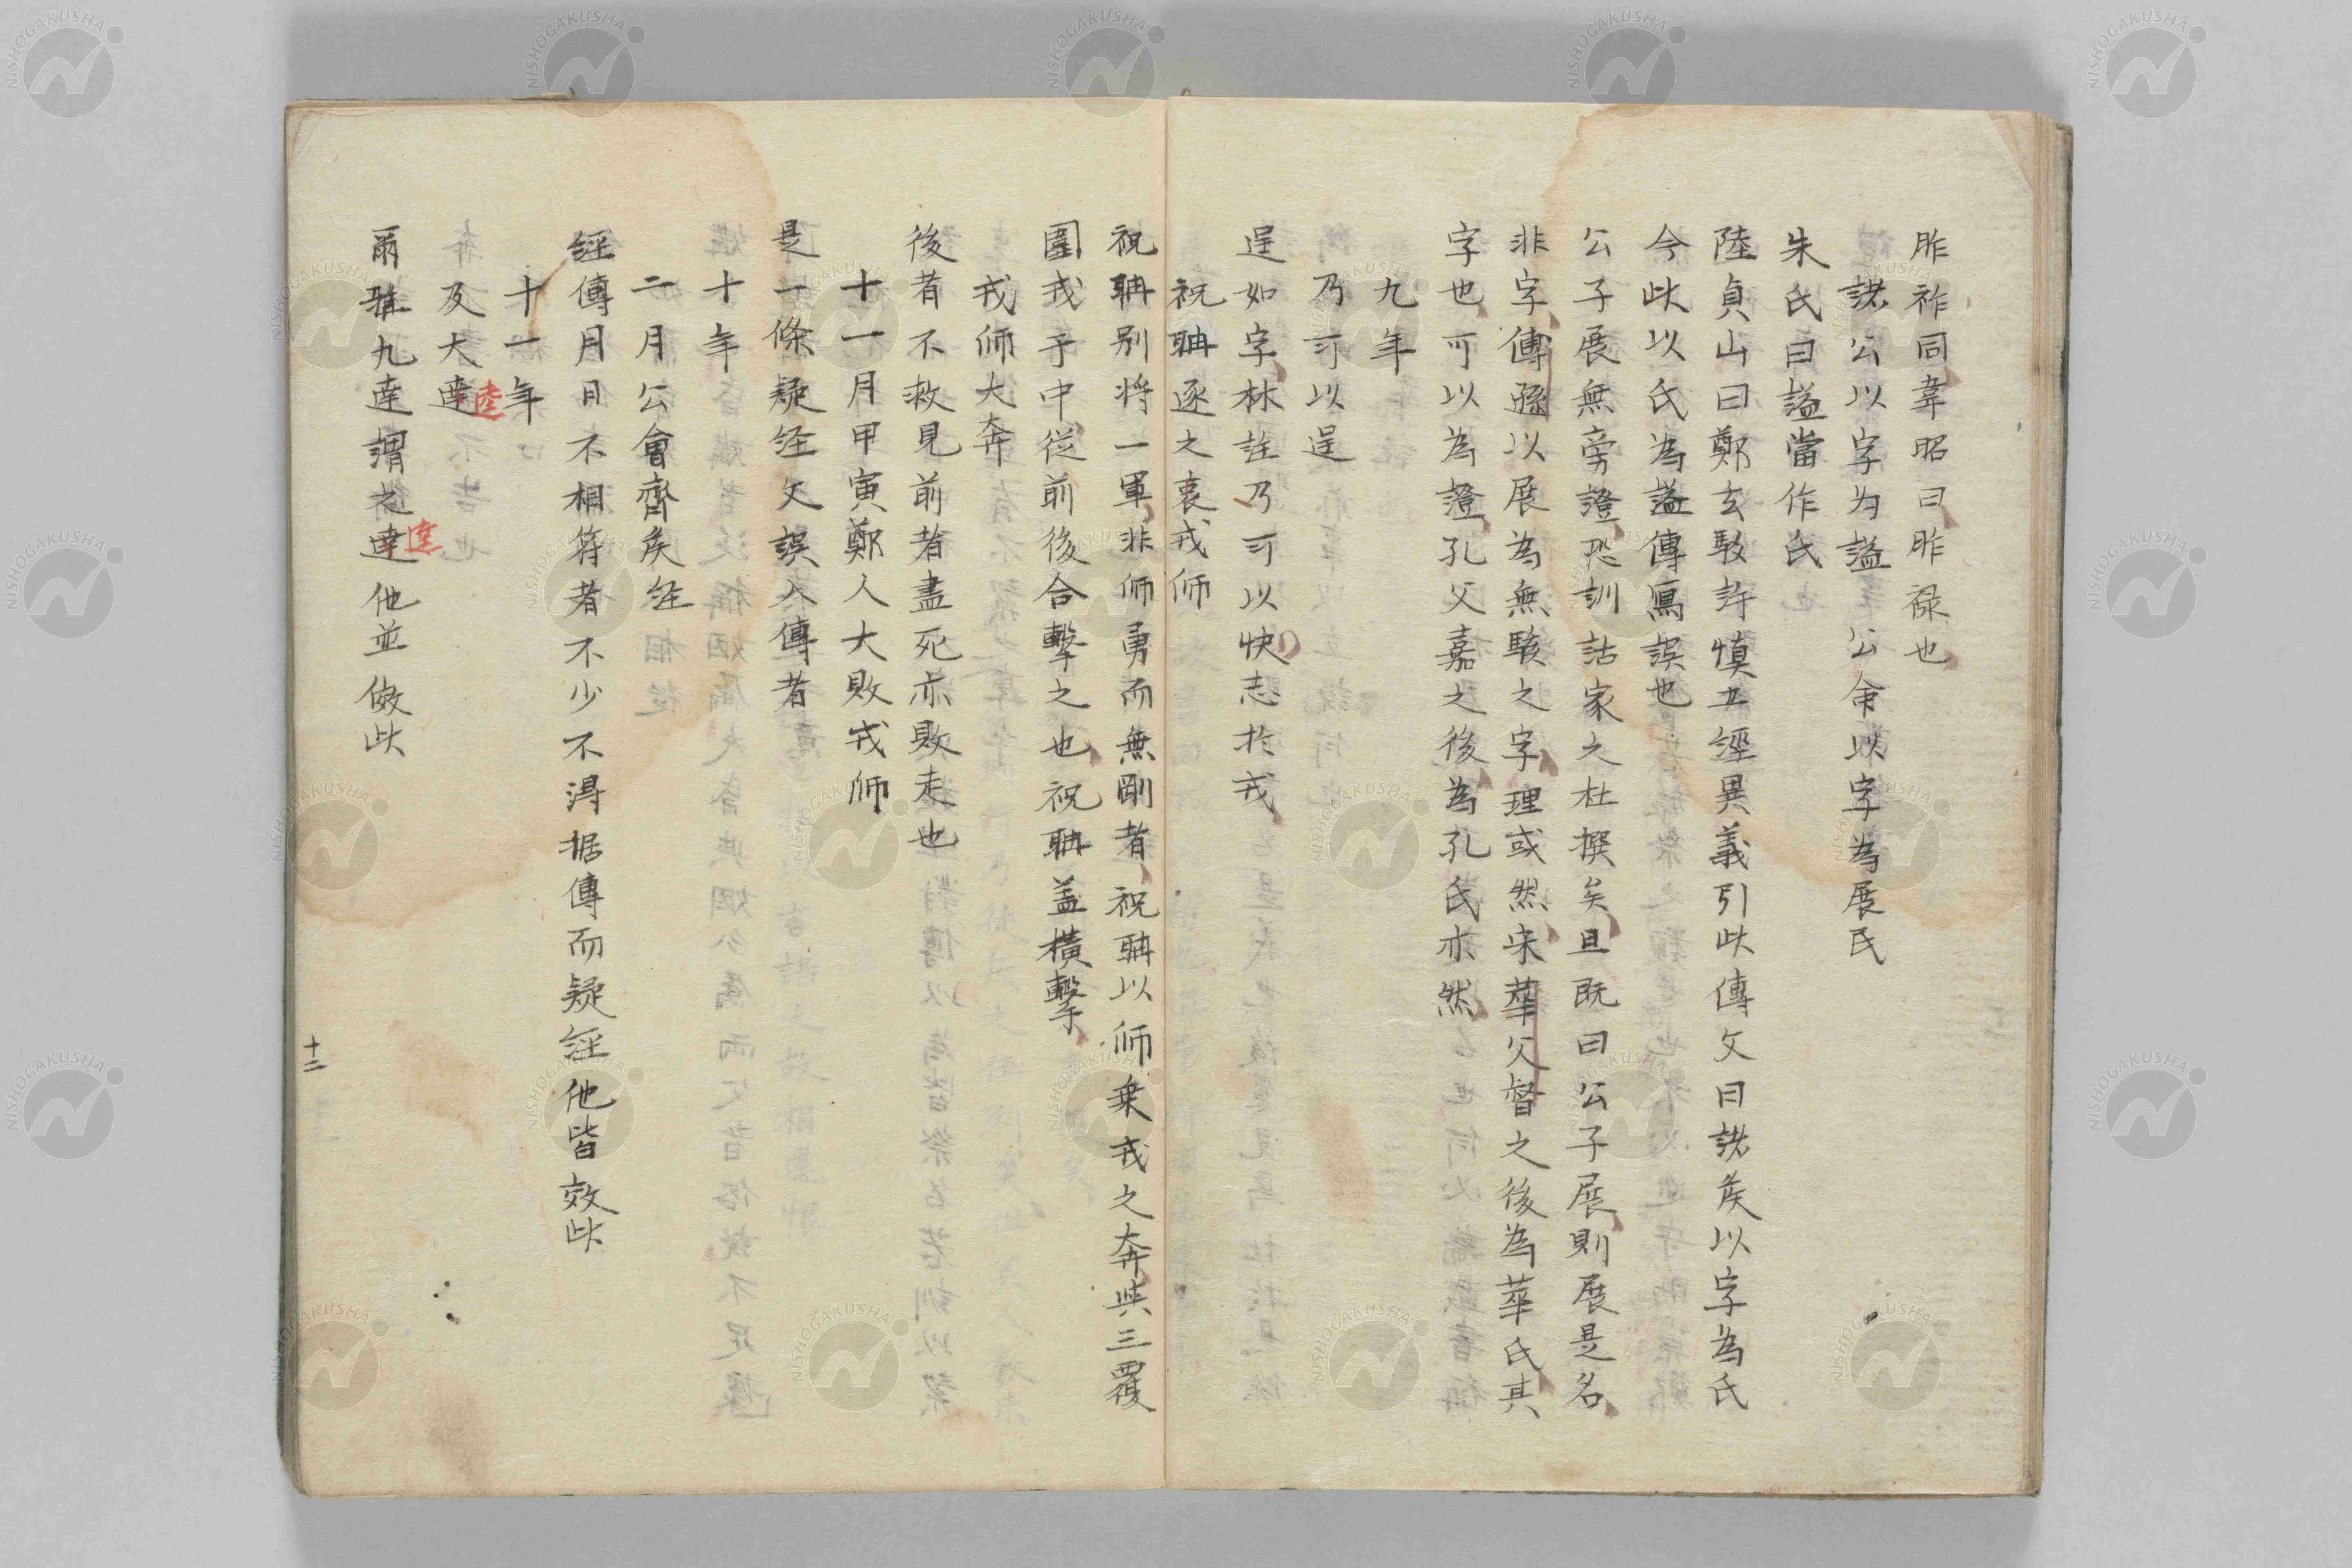 胙祚同韋昭曰胙禄也
諸公以字为諡公命以字為展氏
朱氏曰諡當作氏
陸貞山曰鄭玄駁許慎五經異義引此傳文曰諸矦以字為氏
今此以氏為諡傳寫誤也
公子展無旁證恐訓詁家之杜撰矣且既曰公子展則展是名
非字傳孫以展為無駭之字理或然宋華父督之後為華氏其
字也可以為證孔父嘉之後為孔氏亦然
九年
乃可以逞
逞如字林註乃可以快志於戎
祝聃逐之衷戎师
祝聃别将一軍非师勇而無剛者祝聃以师乗戎之奔与三覆
圍戎于中従前後合擊之也祝聃盖橫擊
戎师大奔
後者不救見前者盡死亦敗走也
十一月甲寅鄭人大敗戎师
是一條疑経文誤入傳者
十年
二月公會齊矦経
経傳月日不相符者不少不淂据傳而疑経他皆效此
十一年
及大逵
逵
爾雅九逵謂之逵他並倣此
逵
十二
NISHOGAKUSHA